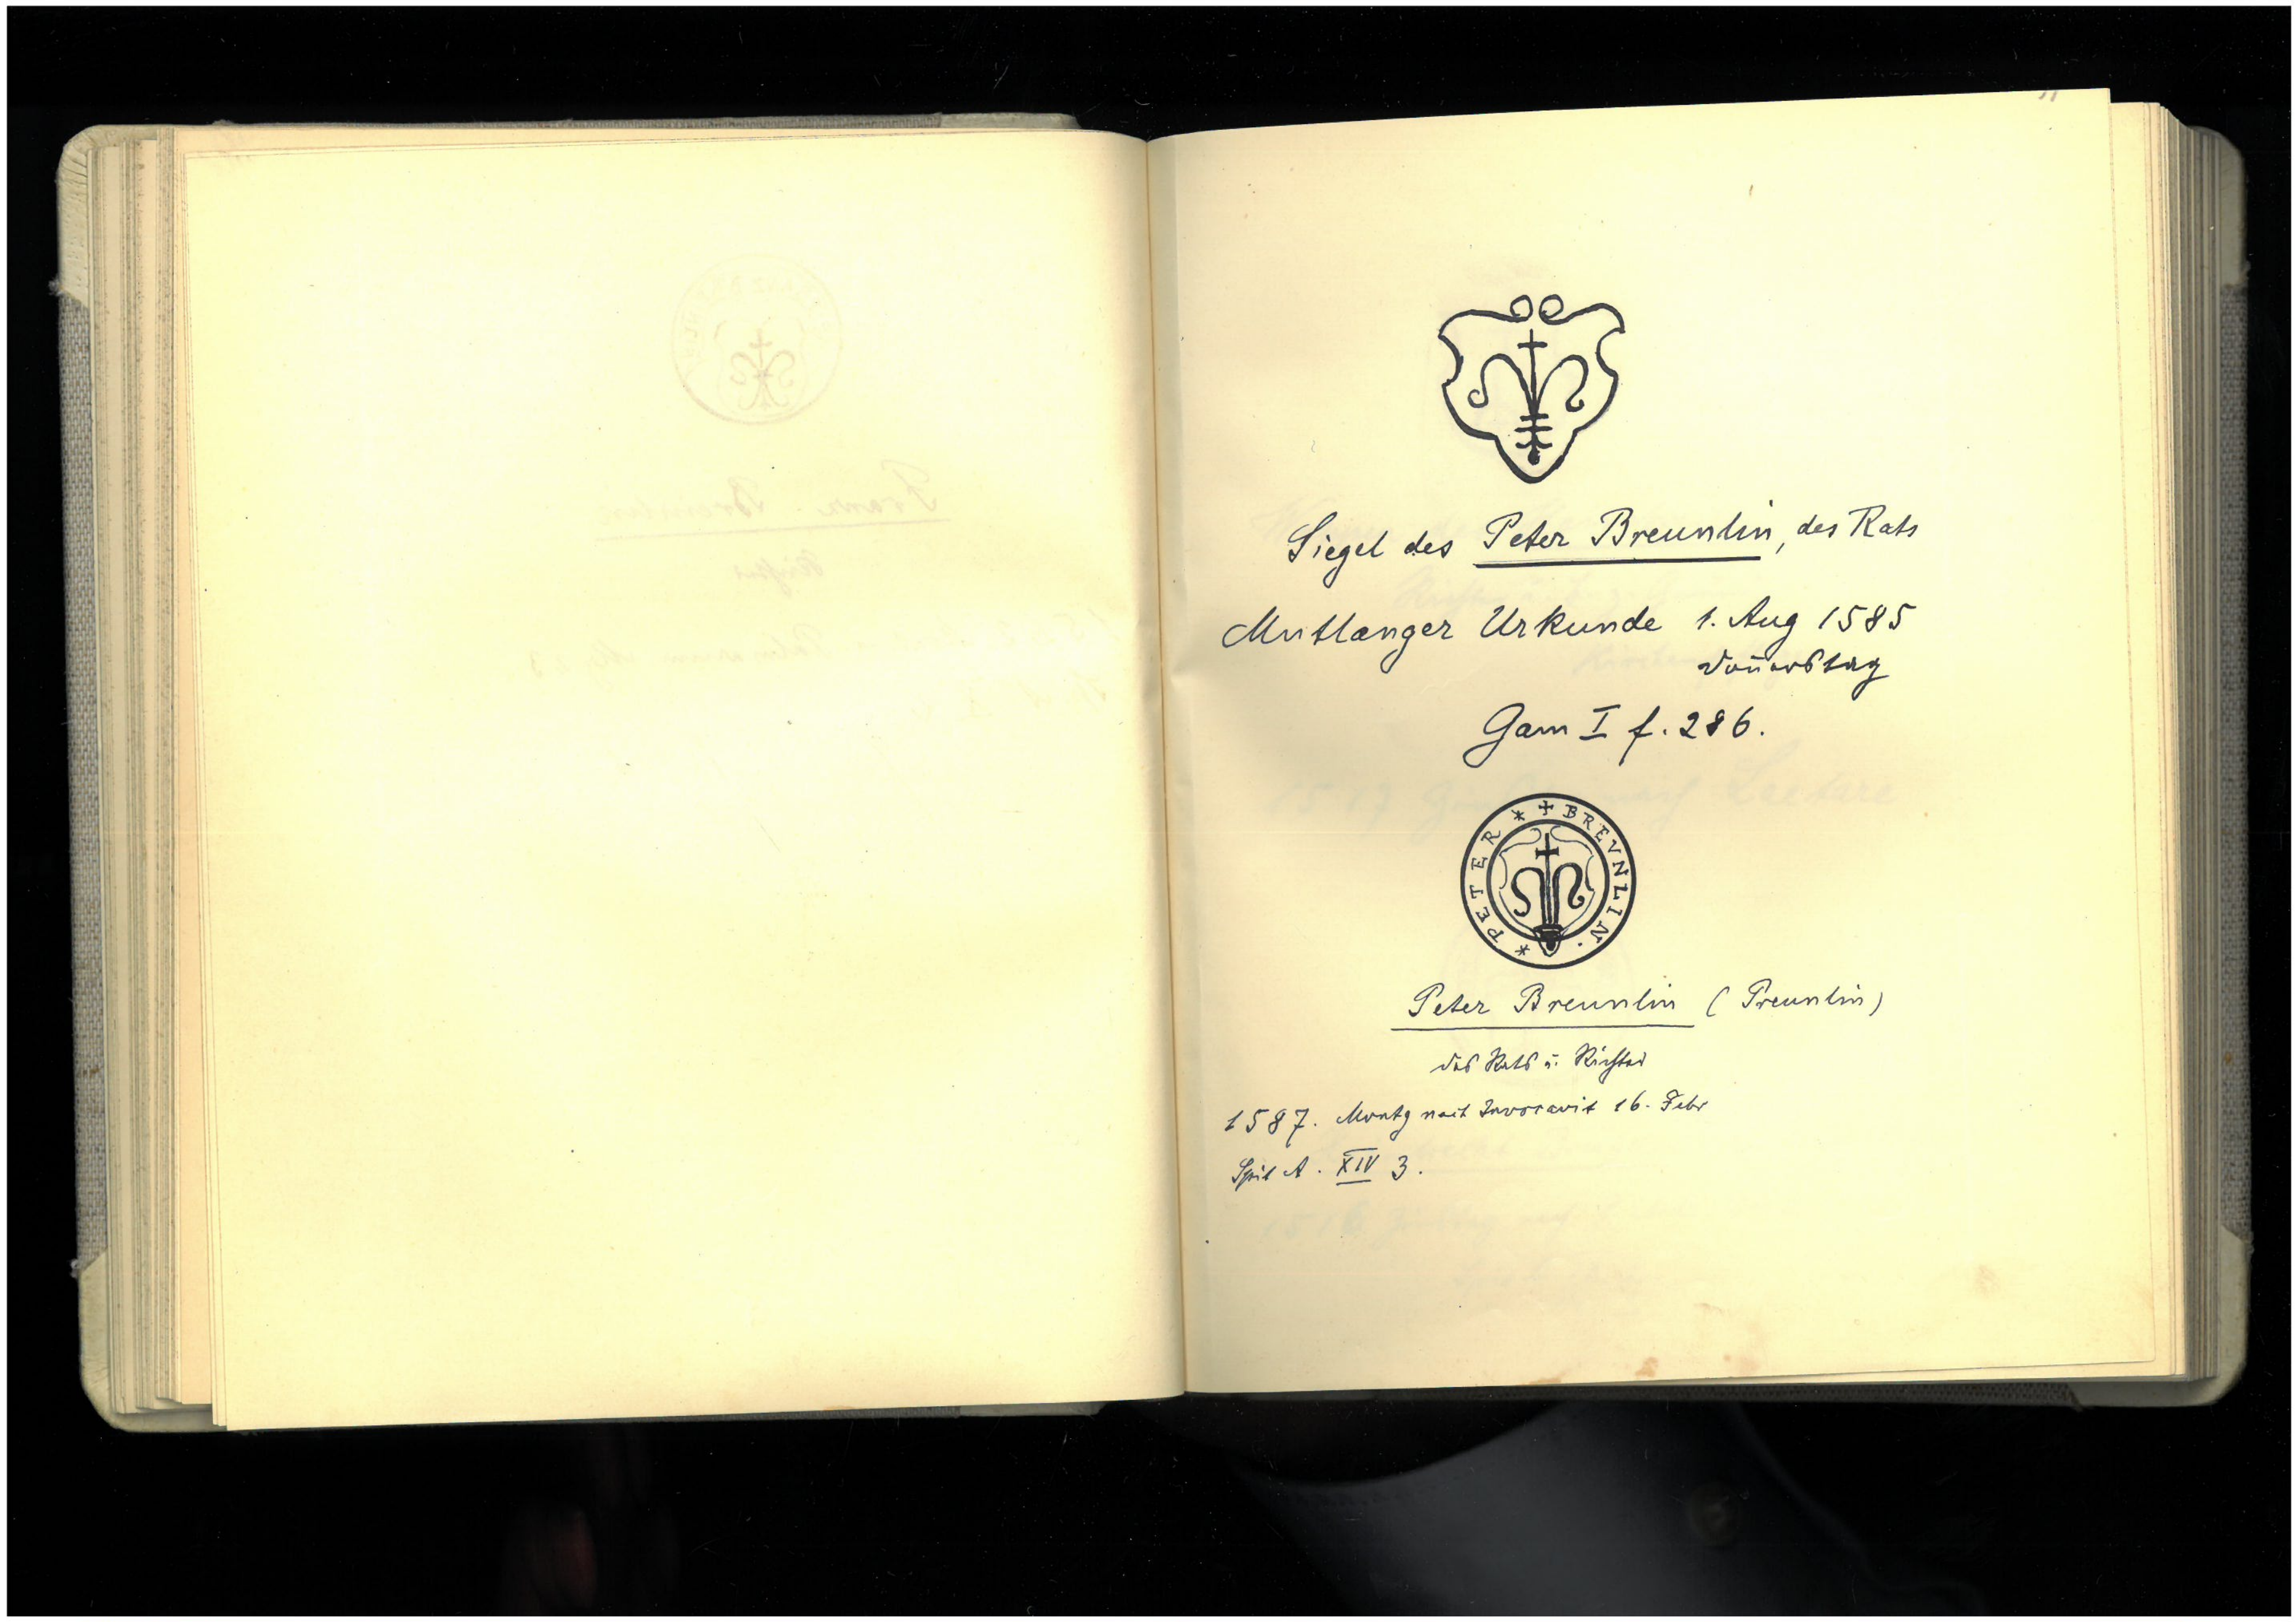 Siegel des Peter Breunlin, des Rats
Mutlanger Urkunde 1. Aug 1585
Donerstag
Gam I f. 286.
* PETER * + BREVNLIN.
Peter Breunlin (Preunlin)
des Rats u. Richter
1587. Montg nach Invocavit 16. Febr
Spit A. XIV 3.